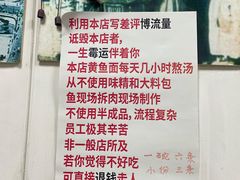 利用本店写差评博流量
诋毁本店者，
一生霉运伴着你
本店黄鱼面每天几小时熬汤
从不使用味精和大料包
鱼现场拆肉现场制作
不使用半成品，流程复杂
员工极其辛苦
非一般店所及
若你觉得不好吃
可直接退钱走人
一碗 六条
小份 三条